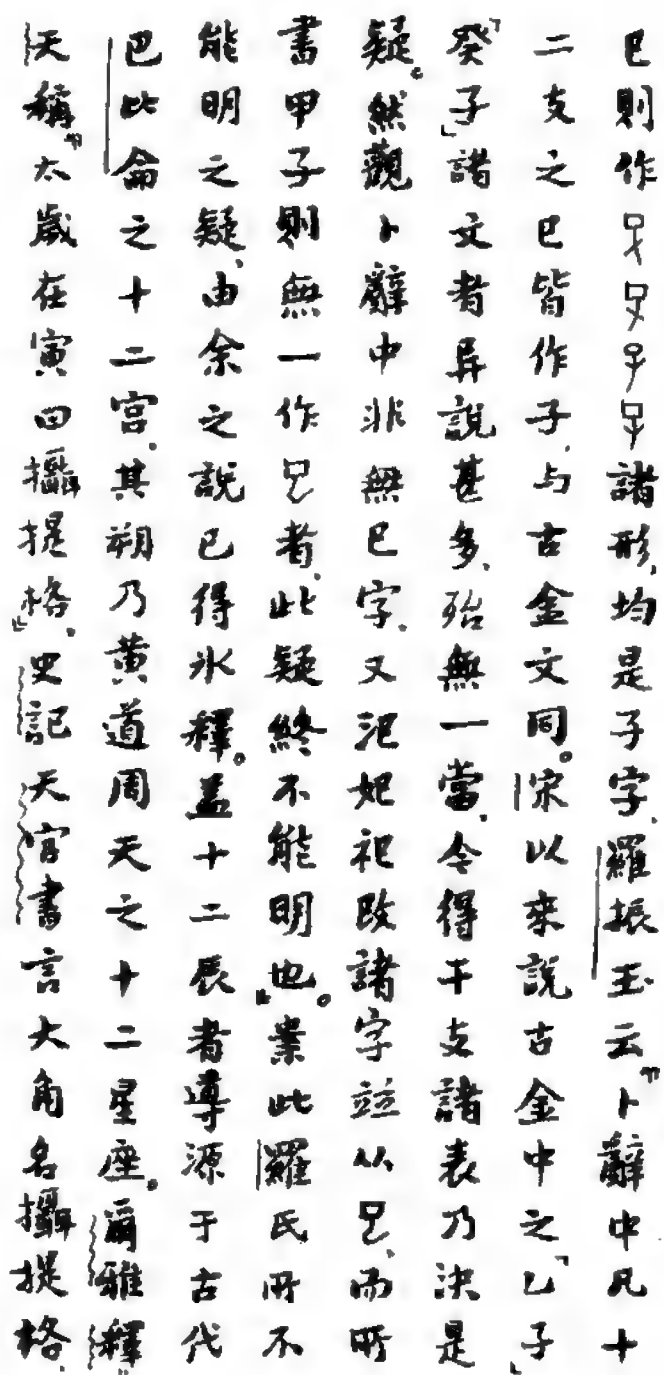 巳則作諸形，均是子字。羅振玉云『卜辭中凡十
二支之巳皆作子，与古金文同。宋以來説古金中之「乙子」
「癸子」諸文者异説甚多，殆無一當，今得干支諸表乃決是
疑。然觀卜辭中非無巳字，又汜妃祀改諸字並从㠯，而所
書甲子則無一作㠯者，此疑終不能明也。』案此羅氏所不
能明之疑，由余之説已得氷釋。蓋十二辰者導源于古代
巴比侖之十二宫，其朔乃黄道周天之十二星座。爾雅釋
天稱『太歲在寅曰攝提格』，史記天官書言大角名攝提格，